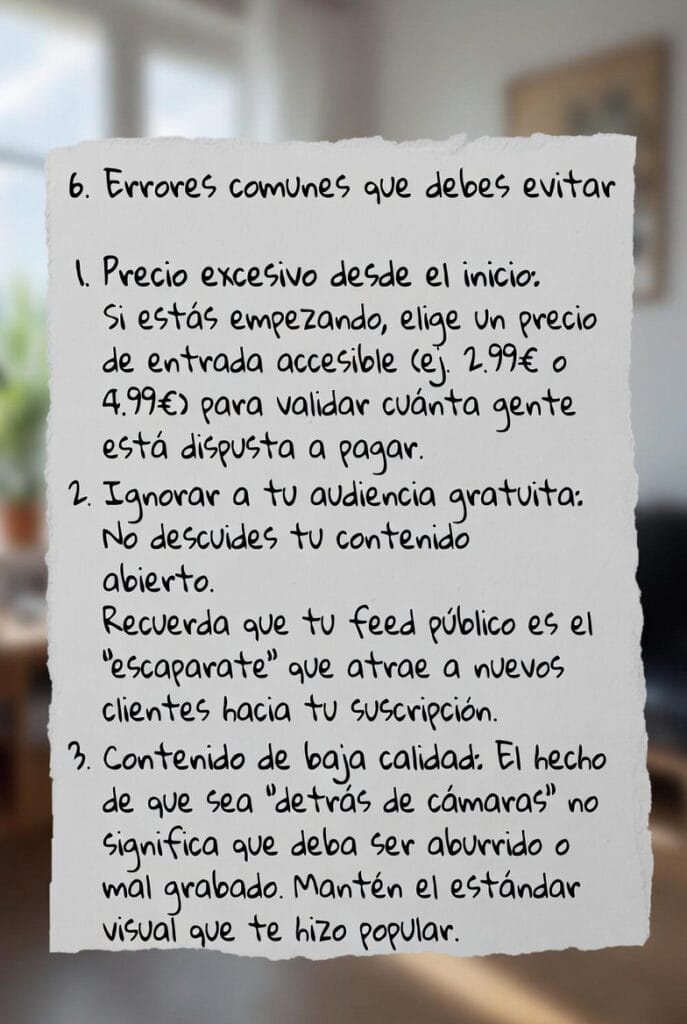 6. Errores comunes que debes evitar
1. Precio excesivo desde el inicio:
Si estás empezando, elige un precio
de entrada accesible (ej. 2.99€ o
4.99€) para validar cuánta gente
está dispusta a pagar.
2. Ignorar a tu audiencia gratuita:
No descuides tu contenido
abierto.
Recuerda que tu feed público es el
"escaparate" que atrae a nuevos
clientes hacia tu suscripción.
3. Contenido de baja calidad: El hecho
de que sea "detrás de cámaras" no
significa que deba ser aburrido o
mal grabado. Mantén el estándar
visual que te hizo popular.